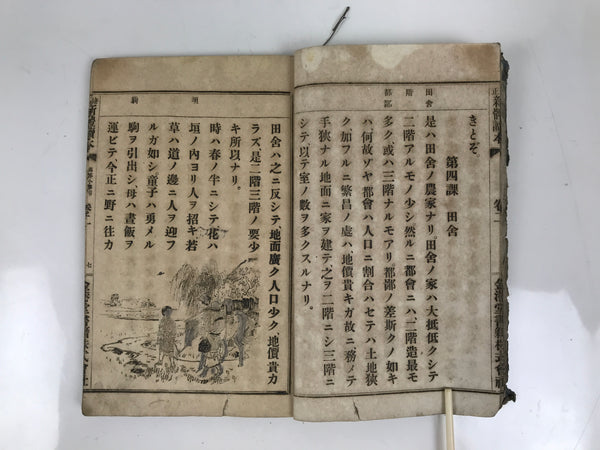 きとぞ。
第四課 田舎
是ハ田舎ノ農家ナリ田舎ノ家ハ大抵低クシテ
二階アルモノ少シ然ルニ都會ニハ、二階造最モ
多ク或ハ三階ナルモアリ都鄙ノ差斯クノ如キ
ハ何故ゾヤ都會ハ人口ニ割合ハセテハ土地狹
ク加フルニ繁昌ノ處ハ地價貴キガ故ニ務メテ
手狹ナル地面ニ家ヲ建テ之ヲ二階ニシ三階ニ
シテ以テ室ノ數ヲ多クスルナリ。
田舎
階
都鄙
新體讀本
金港堂書籍株式會社
田舎ハ之ニ反シテ、地面廣ク人口少ク、地價貴カ
ラズ、是二階三階ノ要少
キ所以ナリ。
時ハ春ノ半ニシテ花ハ
垣ノ内ヨリ人ヲ招キ若
草ハ道ノ邊ニ人ヲ迎フ
ルガ如シ童子ハ勇メル
駒ヲ引出シ、母ハ晝飯ヲ
運ビテ、今正ニ野ニ往カ
駒
七